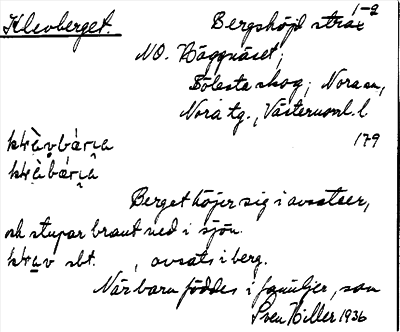 Klevberget. Bergshöjd strax 1-2
NO. Häggnäset,
Bölesta skog, Nora sn,
Nora tg., Västernorrl. l
179
Berget höjer sig i avsatser,
och stupar brant ned i sjön.
sbt. , avsats i berg.
När barn föddes i familjer, som
Sven Hiller 1936